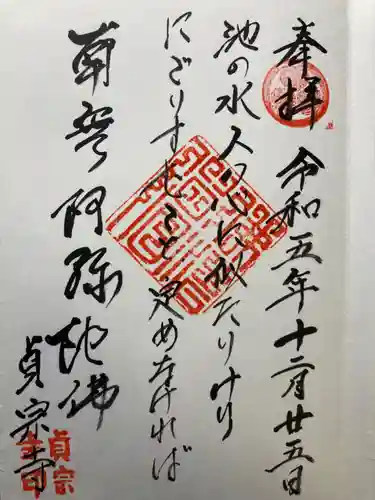 奉拝
令和五年十二月廿五日
池の水人の心に似たりけり
にごりすむこと定めなければ
南無阿弥陀佛
貞宗寺
貞宗